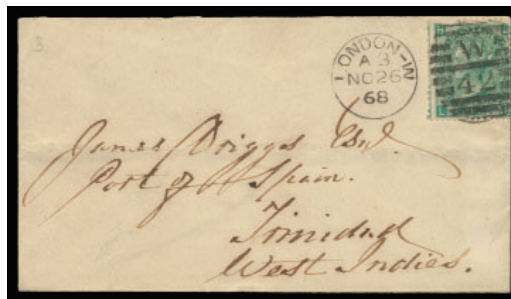 3
LONDON-W
A 3
NO 26
68
W
42
James Briggs Esqr.
Port of Spain.
Trinidad
West Indies.